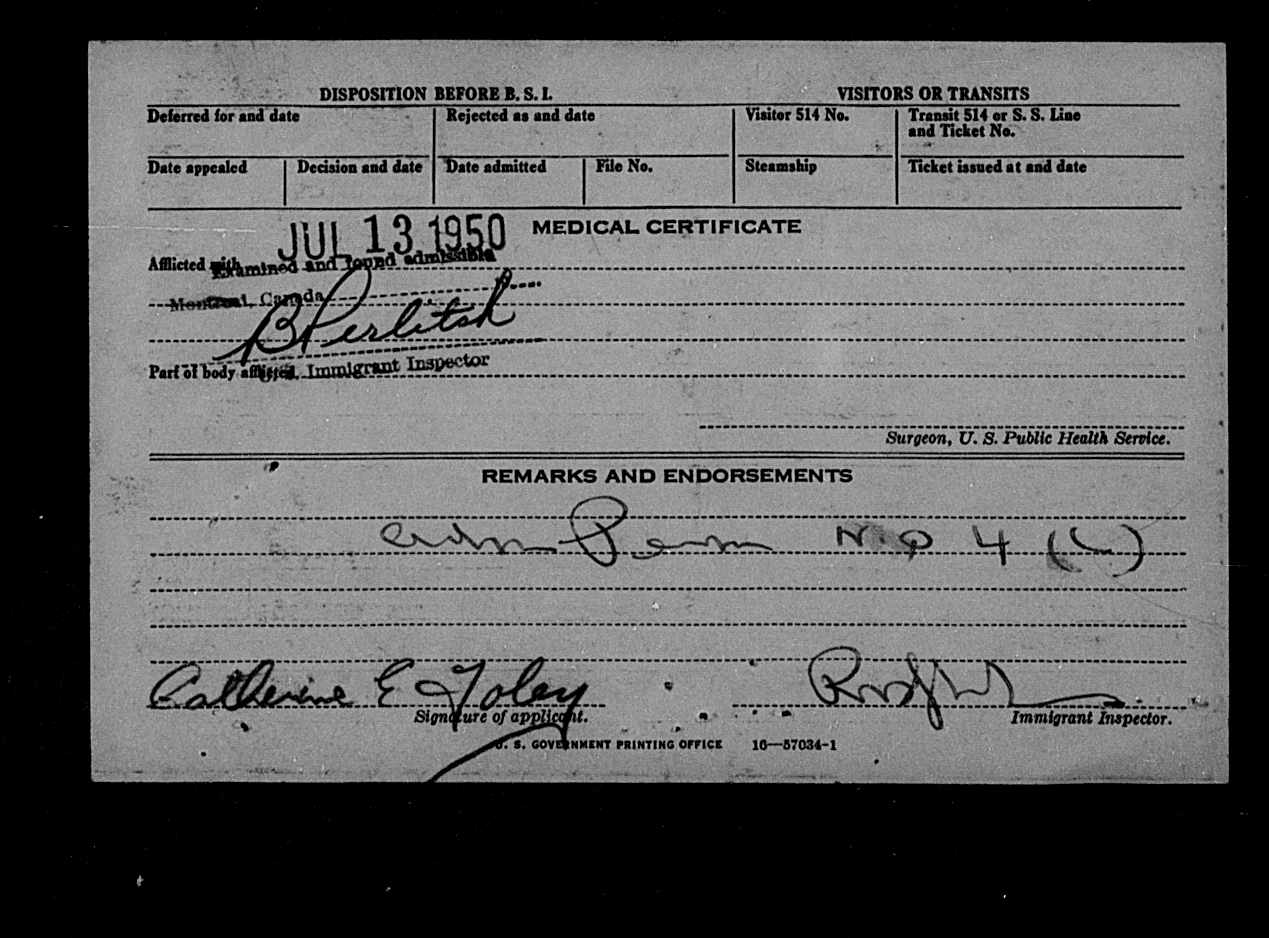 DISPOSITION BEFORE B. S. I.
VISITORS OR TRANSITS
Deferred for and date
Rejected as and date
Visitor 514 No.
Transit 514 or S. S. Line
and Ticket No.
Date appealed
Decision and date
Date admitted
File No.
Steamship
Ticket issued at and date
JUL 13 1950
MEDICAL CERTIFICATE
Afflicted with
Examined and found admissible
Montreal, Canada
B Perlitsh
Part of body afflicted
Immigrant Inspector
Surgeon, U. S. Public Health Service.
REMARKS AND ENDORSEMENTS
Adm Perm N Q 4 (c)
Catherine E Foley
Signature of applicant.
Immigrant Inspector.
U. S. GOVERNMENT PRINTING OFFICE 16—57034-1